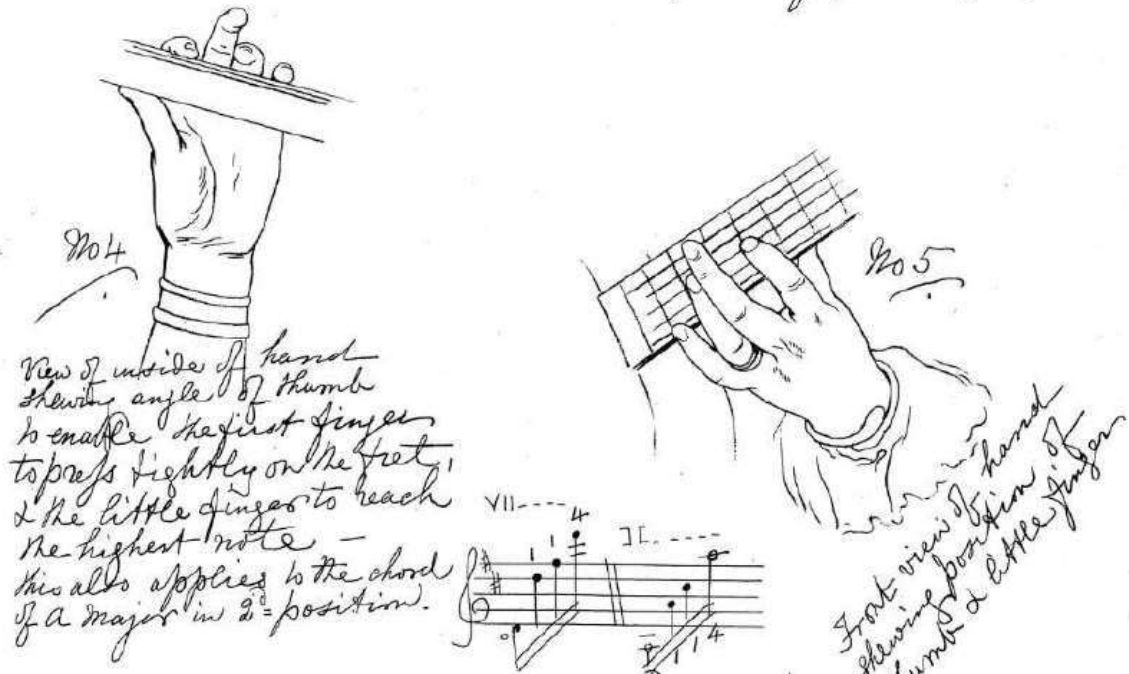 No 4
View of inside of hand
shewing angle of thumb
to enable the first finger
to press tightly on the fret,
& the little finger to reach
the highest note —
this also applies to the chord
of A major in 2d position.
No 5
Front view of hand
shewing position of
thumb & little finger
VII
4
1 1
II
1 1 4